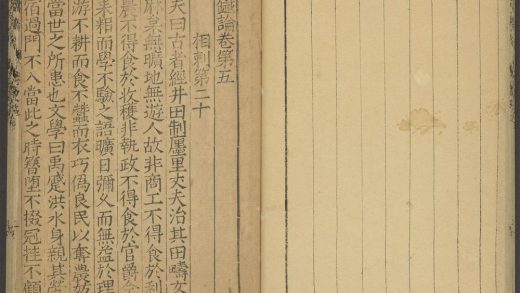 鐵論卷第五
相刺第二十
夫曰古者經井田制廛里丈夫治其田疇女
麻枲無曠地無遊人故非商工不得食於利
農不得食於收穫非執政不得食於官爵今
耒耜而學不驗之語曠日彌久而無益於理
游不耕而食不蠶而衣巧偽良民以奪農妨
當世之所患也文學曰禹蹙洪水身親其勞
宿過門不入當此之時簪墮不掇冠挂不顧